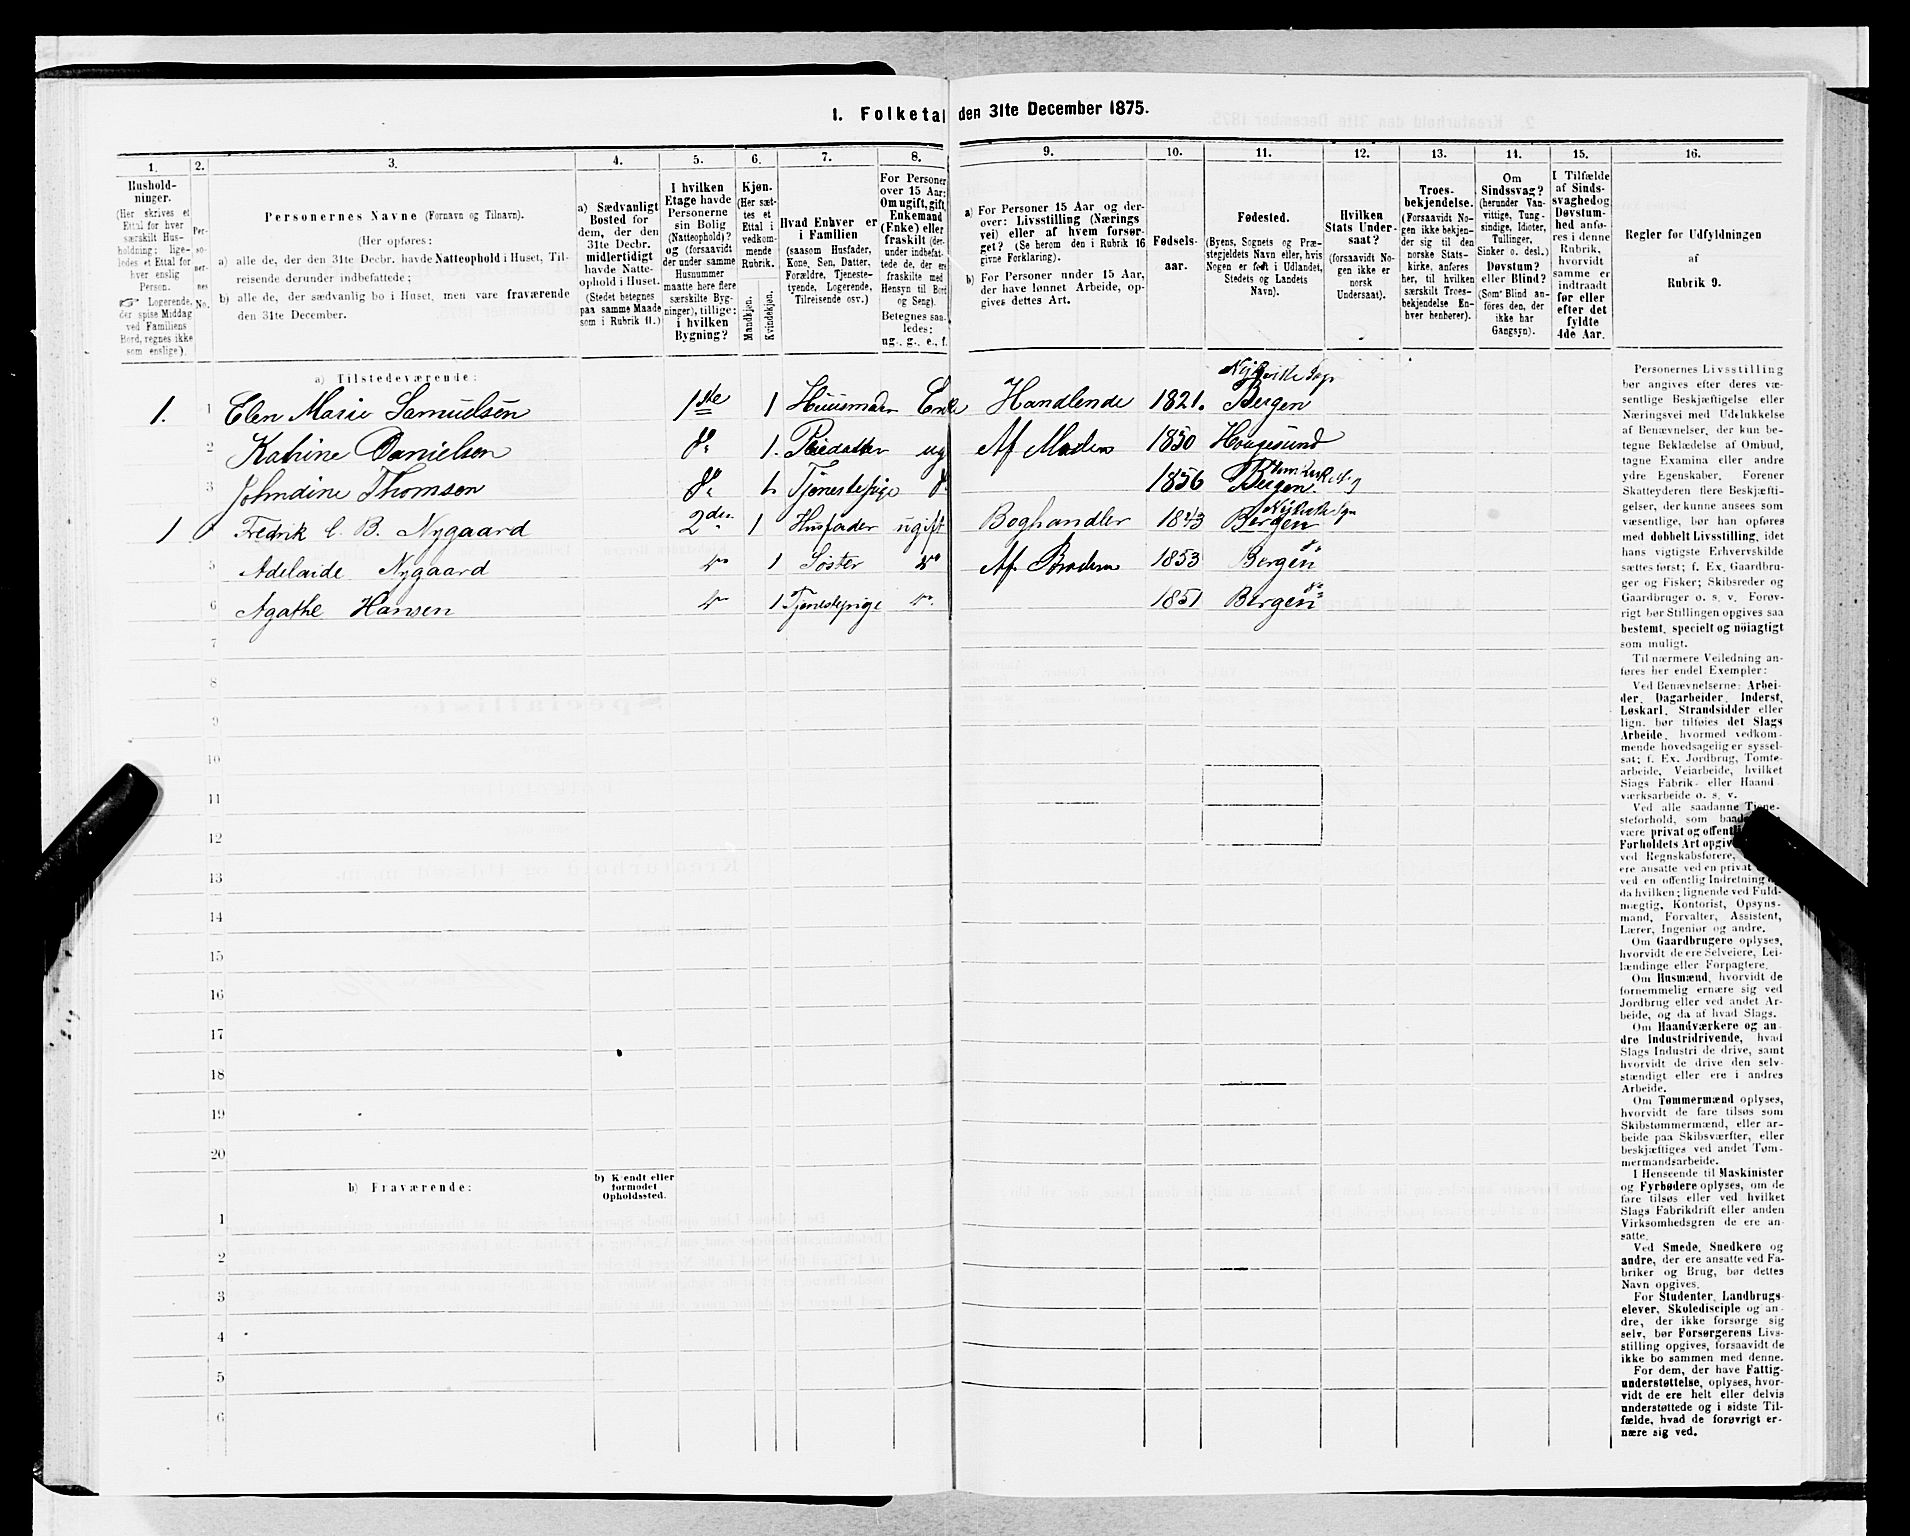 1. Folketal den 31te December 1875.
1. 2. 3. 4. 5. 6. 7. 8. 9. 10. 11. 12. 13. 14. 15. 16.
Hushold-
ninger.
(Her skrives et
Ettal for hver
særskilt Hus-
holdning; lige-
ledes et Ettal for
hver enslig
Person.
☞ Logerende,
der spise Middag
ved Familiens
Bord, regnes ikke
som enslige).
Per-
so-
ner-
nes
No.
Personernes Navne (Fornavn og Tilnavn).
(Her opføres:
a) alle de, der den 31te Decbr. havde Natteophold i Huset, Til-
reisende derunder indbefattede;
b) alle de, der sædvanlig bo i Huset, men vare fraværende
den 31te December.
a) Sædvanligt
Bosted for
dem, der den
31te Decbr.
midlertidigt
havde Natte-
ophold i Huset.
(Stedet betegnes
paa samme Maade
som i Rubrik 11.)
I hvilken
Etage havde
Personerne
sin Bolig
(Natteophold)?
og (forsaavidt
der under samme
Husnummer
maatte høre flere
særskilte Byg-
ninger), tillige:
i hvilken
Bygning?
Kjøn.
(Her sæt-
tes et
Ettal i
vedkom-
mende
Rubrik.
Mandkjøn.
Kvindekjøn.
Hvad Enhver er
i Familien
(saasom Husfader,
Kone, Søn, Datter,
Forældre, Tjeneste-
tyende, Logerende,
Tilreisende osv.)
For Personer
over 15 Aar:
Om ugift, gift,
Enkemand
(Enke) eller
fraskilt (der-
under indbefat-
tede de, der ere
fraskilte med
Hensyn til Bord
og Seng).
Betegnes saa-
ledes:
ug., g., e., f.
a) For Personer 15 Aar og der-
over: Livsstilling (Nærings
vei) eller af hvem forsør-
get? (Se herom den i Rubrik 16
givne Forklaring).
b) For Personer under 15 Aar,
der have lønnet Arbeide, op-
gives dettes Art.
Fødsels-
aar.
Fødested.
(Byens, Sognets og Præ-
stegjeldets Navn eller, hvis
Nogen er født i Udlandet,
Stedets og Landets
Navn).
Hvilken
Stats Under-
saat?
(forsaavidt No-
gen ikke er
norsk
Undersaat).
Troes-
bekjendelse.
(Forsaavidt No-
gen ikke bekjen-
der sig til den
norske Stats-
kirke, anføres
her, til hvilken
særskilt Troes-
bekjendelse En-
hver henhører).
Om
Sindssvag?
(herunder Van-
vittige, Tung-
sindige, Idioter,
Tullinger,
Sinker o. desl.)
Døvstum?
eller Blind?
(Som Blind an-
føres den, der
ikke har
Gangsyn).
I Tilfælde
af Sinds-
svaghed og
Døvstum-
hed anfø-
res i denne
Rubrik,
hvorvidt
samme er
indtraadt
før eller
efter det
fyldte
4de Aar.
Regler for Udfyldningen
af
Rubrik 9.
a) Tilstedeværende:
1. 1 Elen Marie Samuelsen 1ste 1 Huusmoder Enke Handlende 1821. Nykirke Sogn Bergen
2 Katrine Danielsen do 1. Pleiedatter ug Af Moderen 1850 Hougesund
3 Johndine Thomsen do 1. Tjenestepige do 1856 Bergen
1 Fredrik C. B. Nygaard 2den 1 Husfader ugift Boghandler 1843 Bergen Nykirke Sgn
5 Adelaide Nygaard do 1 Søster do Af Broderen 1853 Bergen do
6 Agathe Hansen do 1 Tjenestepige do 1851 Bergen do
7
8
9
10
11
12
13
14
15
16
17
18
19
20
b) Fraværende:
b) Kendt eller
formodet
Opholdssted.
1
2
3
4
5
6
Personernes Livsstilling
bør angives efter deres væ-
sentlige Beskjæftigelse eller
Næringsvei med Udelukkelse
af Benævnelser, der kun be-
tegne Beklædelse af Ombud,
tagne Examina eller andre
ydre Egenskaber. Forener
Skatteyderen flere Beskjæfti-
gelser, der kunne ansees som
væsentlige, bør han opføres
med dobbelt Livsstilling, idet
hans vigtigste Erhvervskilde
sættes først; f. Ex. Gaardbru-
ger og Fisker; Skibsreder og
Gaardbruger o. s. v. Forøv-
rigt bør Stillingen opgives saa
bestemt, specielt og nøiagtigt
som muligt.
Til nærmere Veiledning an-
føres her endel Exempler:
Ved Benævnelserne: Arbei-
der, Dagarbeider, Inderst,
Løskarl, Strandsidder eller
lign. bør tilføies det Slags
Arbeide, hvormed vedkom-
mende hovedsagelig er syssel-
sat; f. Ex. Jordbrug, Tomte-
arbeide, Veiarbeide, hvilket
Slags Fabrik- eller Haand-
værksarbeide o. s. v.
Ved alle saadanne Tjene-
steforhold, som
være privat og
Forholdets Art
ved Regnskabsførere,
ere ansatte ved en privat
ved en offentlig Indretning
da hvilken; lignende ved Fuld-
mægtig, Kontorist, Opsyns-
mand, Forvalter, Assistent,
Lærer, Ingeniør og andre.
Om Gaardbrugere oplyses,
hvorvidt de ere Selveiere, Lei-
lændinge eller Forpagtere.
Om Husmænd, hvorvidt de
fornemmelig ernære sig ved
Jordbrug eller ved andet Ar-
beide, og da af hvad Slags.
Om Haandværkere og an-
dre Industridrivende, hvad
Slags Industri de drive, samt
hvorvidt de drive den selv-
stændigt eller ere i andres
Arbeide.
Om Tømmermænd oplyses,
hvorvidt de fare tilsøs som
Skibstømmermænd, eller ar-
beide paa Skibsværfter, eller
beskjæftiges ved andet Tøm-
mermandsarbeide.
I Henseende til Maskinister
og Fyrbødere oplyses, om de
fare tilsøs eller ved hvilket
Slags Fabrikdrift eller anden
Virksomhedsgren de ere an-
satte.
Ved Smede, Snedkere og
andre, der ere ansatte ved Fa-
briker og Brug, bør dettes
Navn opgives.
For Studenter, Landbrugs-
elever, Skoledisciple og an-
dre, der ikke forsørge sig
selv, bør Forsørgerens Livs-
stilling opgives, forsaavidt de
ikke bo sammen med denne.
For dem, der have Fattig-
understøttelse, oplyses, hvor-
vidt de ere helt eller delvis
understøttede og i sidste Til-
fælde, hvad de forøvrigt er-
nære sig ved.